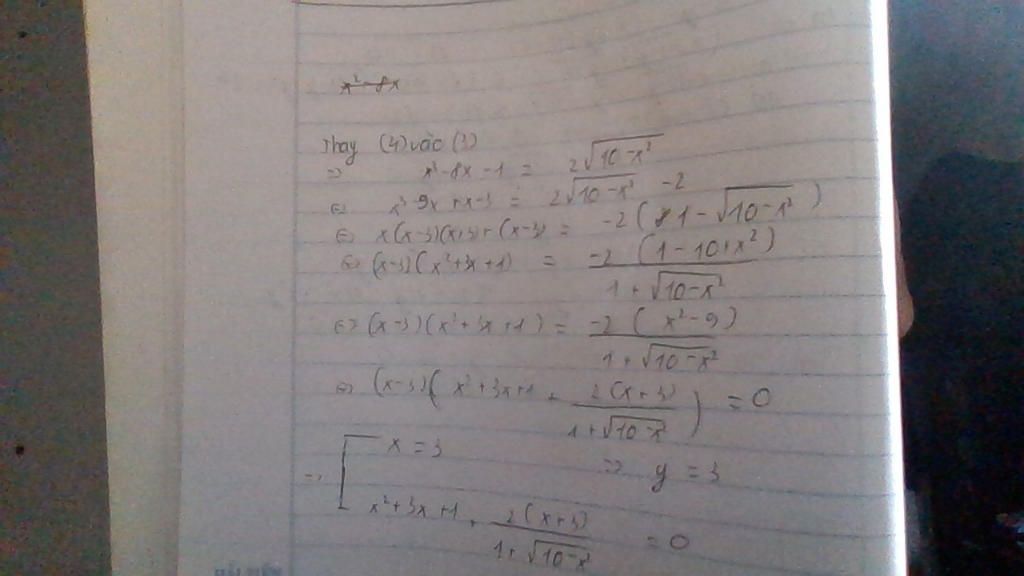 x² - 8x
Thay (4) vào (3)
=> x³ - 8x - 1 = 2√(10 - x²)
<=> x³ - 9x + x - 3 = 2√(10 - x²) - 2
<=> x(x-3)(x+3) + (x-3) = -2(1 - √(10 - x²))
<=> (x-3)(x² + 3x + 1) = -2(1 - 10 + x²) / (1 + √(10 - x²))
<=> (x-3)(x² + 3x + 1) = -2(x² - 9) / (1 + √(10 - x²))
<=> (x-3)(x² + 3x + 1 + 2(x+3) / (1 + √(10 - x²))) = 0
=> [ x = 3 => y = 3
x² + 3x + 1 + 2(x+3) / (1 + √(10 - x²)) = 0